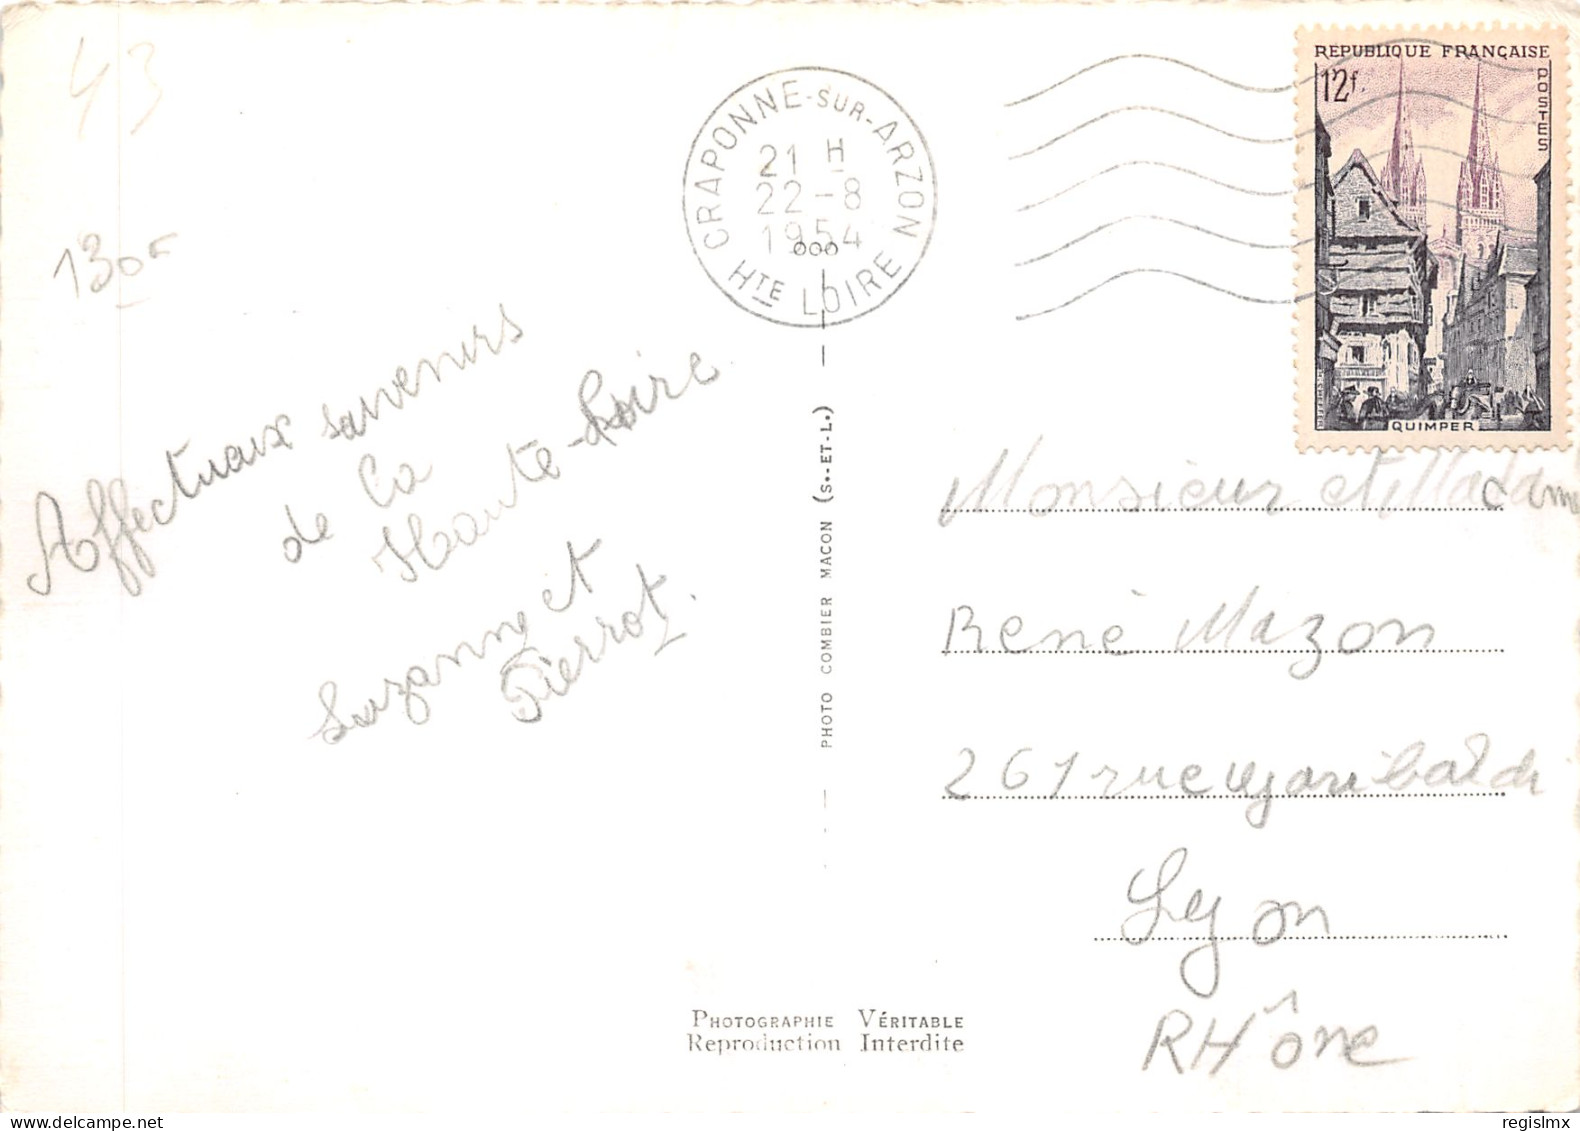 43
130
CRAPONNE-SUR-ARZON
21 H
22-8
1954
HTE LOIRE
REPUBLIQUE FRANÇAISE
12f.
POSTES
QUIMPER
Affectueux souvenirs
de la
Haute-Loire
Suzanne et
Pierrot.
PHOTO COMBIER MACON (S.-ET-L.)
Monsieur et Madame
René Mazon
261 rue garibaldi
Lyon
RHône
PHOTOGRAPHIE VÉRITABLE
Reproduction Interdite
delcampe.net
regislmx